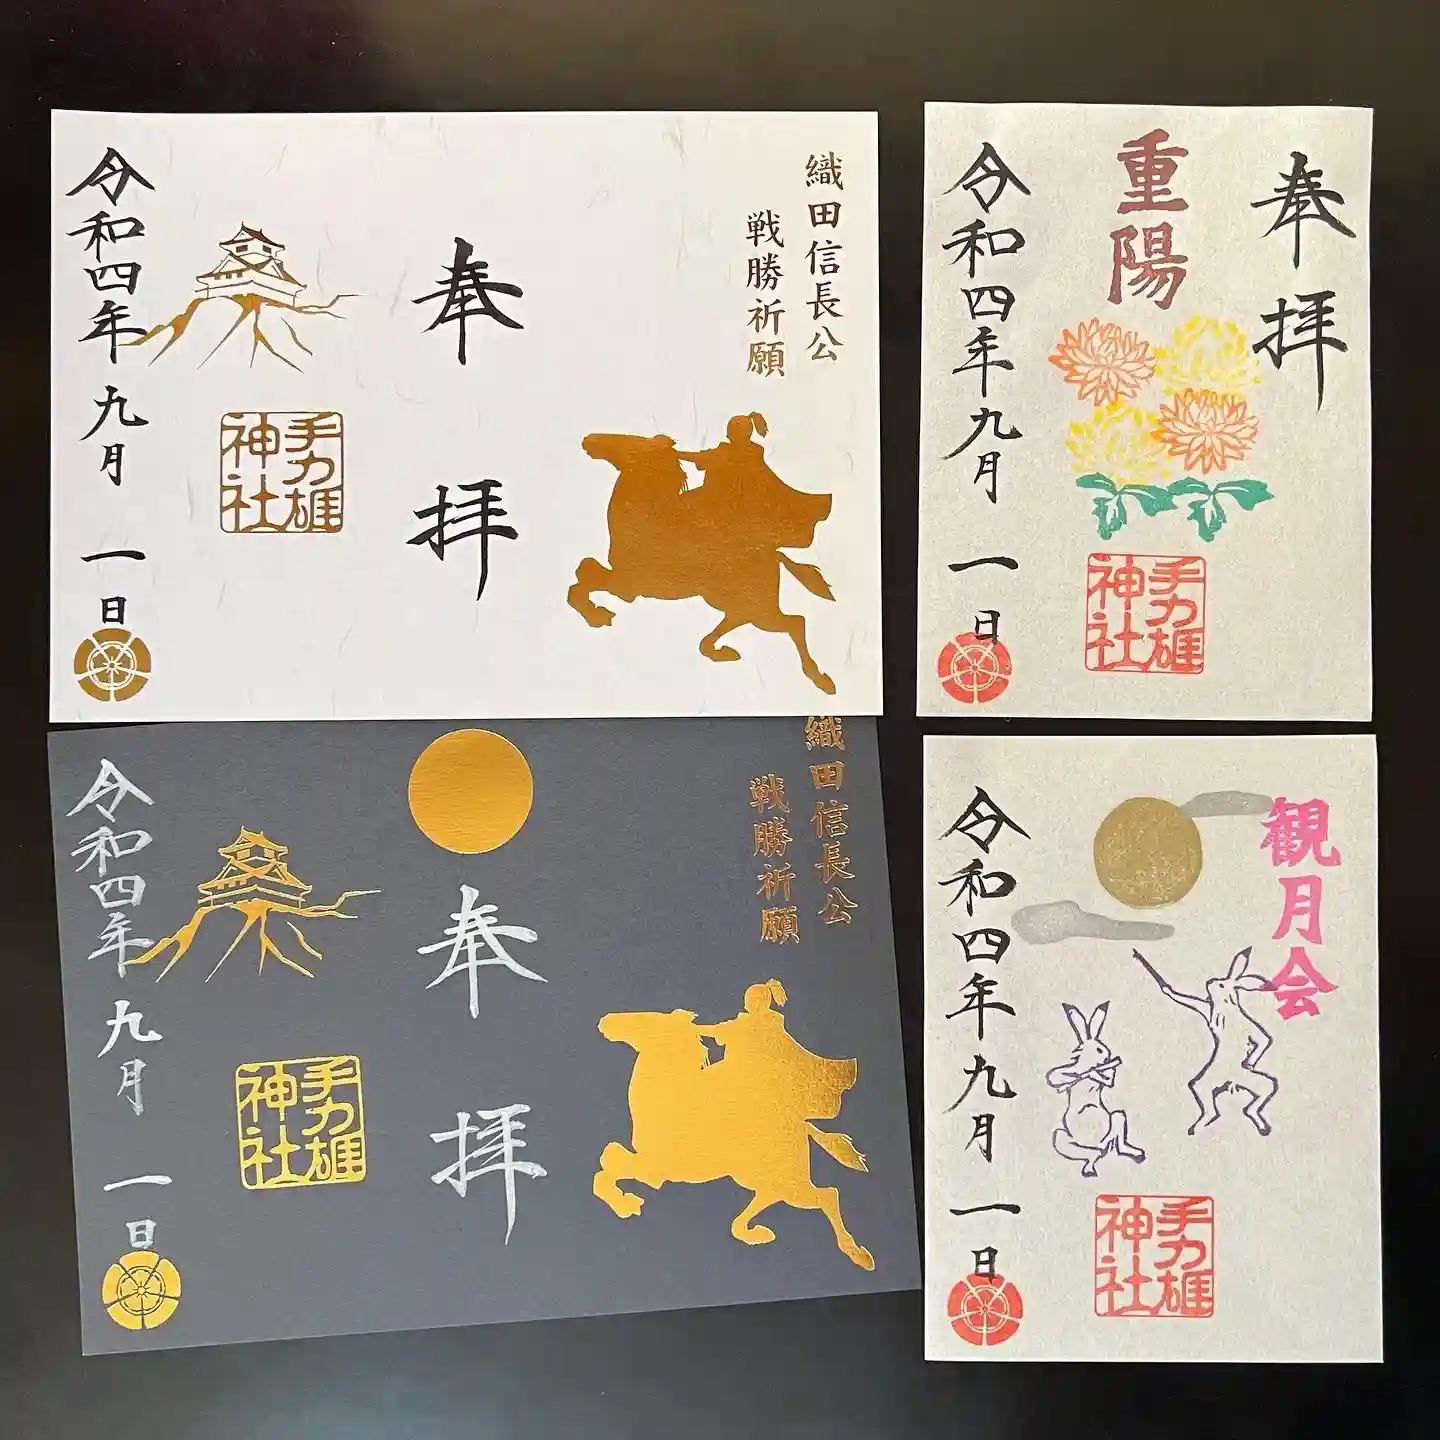 織田信長公
戦勝祈願
奉拝
手力雄
神社
令和四年九月一日
重陽
奉拝
手力雄
神社
令和四年九月一日
織田信長公
戦勝祈願
奉拝
手力雄
神社
令和四年九月一日
観月会
手力雄
神社
令和四年九月一日